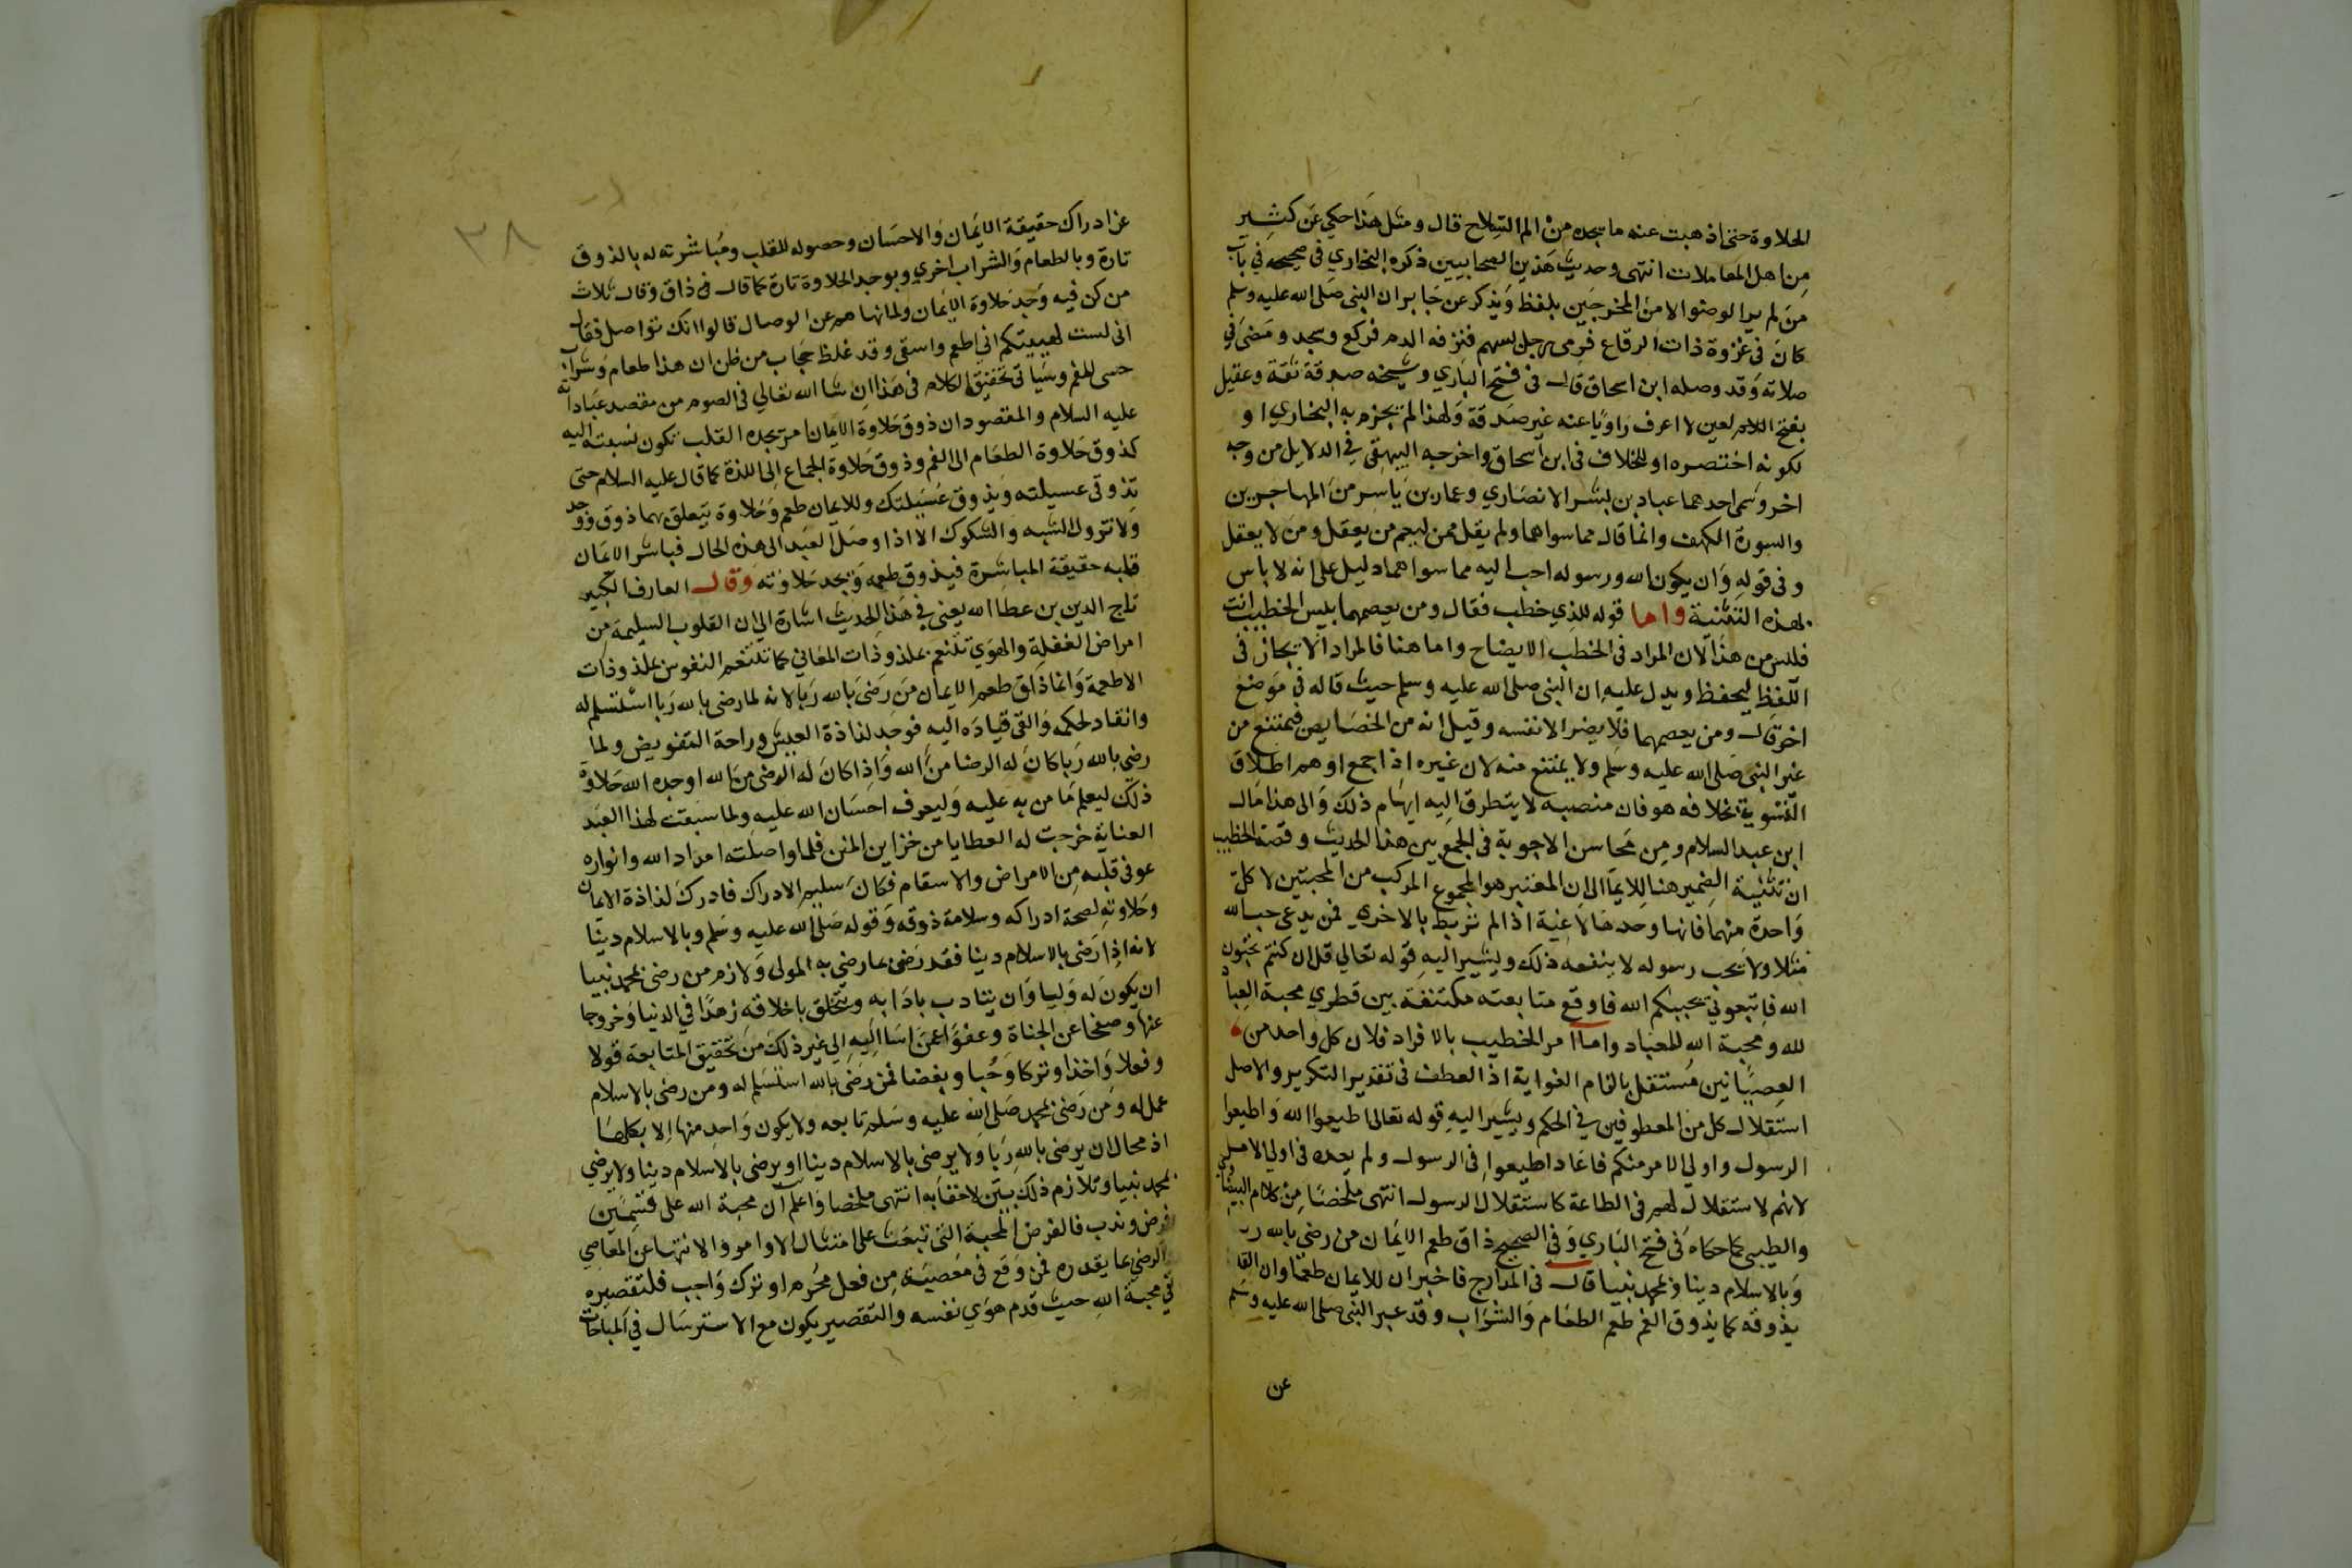 الحلاوة حتى اذهبت عنه ما يجده من الم السلاح قال ومثل هذا حكي عن كثير
من اهل المعاملات انتهى وحديث هذين الصحابيين ذكره البخاري في صحيحه في باب
من لم ير الوضوء الا من المخرجين بلفظ ويذكر عن جابر ان النبي صلى الله عليه وسلم
كان في غزوة ذات الرقاع فرمي رجل بسهم فنزفه الدم فركع وسجد ومضى في
صلاته وقد وصله ابن اسحاق قال في فتح الباري وشيخه صدقة ثقة وعقيل
بفتح اللام لعين لا اعرف راويا عنه غير صدقة ولهذا لم يجزم به البخاري او
لكونه اختصره او للخلاف في ابن اسحاق واخرجه البيهقي في الدلايل من وجه
اخر وسمى احدهما عباد بن بشر الانصاري وعمار بن ياسر من المهاجرين
والسورة الكهف وانما قال مما سواهما ولم يقل ممن ليعم من يعقل ومن لا يعقل
وفي قوله وان يكون الله ورسوله احب اليه مما سواهما دليل على انه لا باس
بهذه التثنية واما قوله للذي خطب فقال ومن يعصهما بيس الخطيب انت
فليس من هذا لان المراد في الخطب الايضاح واما هنا فالمراد الايجاز في
اللفظ ليحفظ ويدل عليه ان النبي صلى الله عليه وسلم حيث قاله في موضع
اخر قال ومن يعصهما فلا يضر الا نفسه وقيل انه من الخصايص فيمتنع من
غير النبي صلى الله عليه وسلم ولا يمتنع منه لان غيره اذا جمع اوهم اطلاق
التسوية بخلافه هو فان منصبه لا يتطرق اليه ايهام ذلك والى هذا مال
ابن عبد السلام ومن محاسن الاجوبة في الجمع بين هذا الحديث وقصة الخطيب
ان تثنية الضمير هنا للايما الى ان المعتبر هو المجموع المركب من المحبتين لا كل
واحدة منهما فانها وحدها لاغية اذا لم تربط بالاخرى فمن يدعى حب الله
مثلا ولا يحب رسوله لا ينفعه ذلك ويشير اليه قوله تعالى قل ان كنتم تحبون
الله فاتبعوني يحببكم الله فاوقع متابعته مكتنفة بين قطري محبة العباد
لله ومحبة الله للعباد واما امر الخطيب بالافراد فلان كل واحد من
العصيانين مستقل بالزام الغواية اذ العطف في تقدير التكرير والاصل
استقلال كل من المعطوفين في الحكم ويشير اليه قوله تعالى اطيعوا الله واطيعوا
الرسول واولي الامر منكم فاعاد اطيعوا في الرسول ولم يعده في اولي الامر
لانهم لا استقلال لهم في الطاعة كاستقلال الرسول انتهى ملخصا من كلام البيضاوي
والطيبي كما حكاه في فتح الباري وفي الصحيح ذاق طعم الايمان من رضي بالله ربا
وبالاسلام دينا وبمحمد نبيا قال في المدارج فاخبر ان للايمان طعما وان القلب
يذوقه كما يذوق الفم طعم الطعام والشراب وقد عبر النبي صلى الله عليه وسلم
عن
٣٨
عن ادراك حقيقة الايمان والاحسان وحصوله للقلب ومباشرته له بالذوق
تارة وبالطعام والشراب اخرى وبوجد الحلاوة تارة كما قال في ذاق وقال ثلاث
من كن فيه وجد حلاوة الايمان ولما نهاهم عن الوصال قالوا انك تواصل فقال
انى لست كهيئتكم اني اطعم واسقى وقد غلظ حجاب من ظن ان هذا طعام وشراب
حسي للفم وسياتي تحقيق الكلام في هذا ان شا الله تعالى في الصوم من مقصد عباداته
عليه السلام والمقصود ان ذوق حلاوة الايمان امر يجده القلب تكون نسبته اليه
كذوق حلاوة الطعام الى الفم وذوق حلاوة الجماع الى اللذة كما قال عليه السلام حتى
تذوقي عسيلته ويذوق عسيلتك وللايمان طعم وحلاوة يتعلق بهما ذوق ووجد
ولا تزول الشبه والشكوك الا اذا وصل العبد الى هذه الحال فباشر الايمان
قلبه حقيقة المباشرة فيذوق طعمه ويجد حلاوته وقال العارف الكبير
تاج الدين بن عطا الله يعنى في هذا الحديث اشارة الى ان القلوب السليمة من
امراض الغفلة والهوى تتنعم بملذوذات المعاني كما تتنعم النفوس بملذوذات
الاطعمة وانما ذاق طعم الايمان من رضي بالله ربا لانه لما رضي بالله ربا استسلم له
وانقاد لحكمه والقى قياده اليه فوجد لذاذة العيش وراحة التفويض ولما
رضي بالله ربا كان له الرضا من الله واذا كان له الرضى من الله اوجده الله حلاوة
ذلك ليعلم ما من به عليه وليعرف احسان الله عليه ولما سبقت لهذا العبد
العناية خرجت له العطايا من خزاين المنن فلما واصلته امداد الله وانواره
عوفي قلبه من الامراض والاسقام فكان سليم الادراك فادرك لذاذة الايمان
وحلاوته لصحة ادراكه وسلامة ذوقه وقوله صلى الله عليه وسلم وبالاسلام دينا
لانه اذا رضي بالاسلام دينا فقد رضي بما رضي به المولى ولازم من رضي بمحمد نبيا
ان يكون له وليا وان يتادب بادابه ويتخلق باخلاقه زهدا في الدنيا وخروجا
عنها وصفحا عن الجناة وعفوا عمن اسا اليه الى غير ذلك من تحقيق المتابعة قولا
وفعلا واخذا وتركا وحبا وبغضا فمن رضي بالله استسلم له ومن رضي بالاسلام
عمل له ومن رضي بمحمد صلى الله عليه وسلم تابعه ولا يكون واحد منها الا بكلها
اذ محال ان يرضى بالله ربا ولا يرضى بالاسلام دينا او يرضى بالاسلام دينا ولا يرضى
بمحمد نبيا وتلازم ذلك بين لا خفا به انتهى ملخصا واعلم ان محبة الله على قسمين
فرض وندب فالفرض المحبة التي تبعث على امتثال الاوامر والانتها عن المعاصي
والرضى بما يقدره فمن وقع في معصية من فعل محرم او ترك واجب فلتقصيره
في محبة الله حيث قدم هوى نفسه والتقصير يكون مع الاسترسال في المباحات